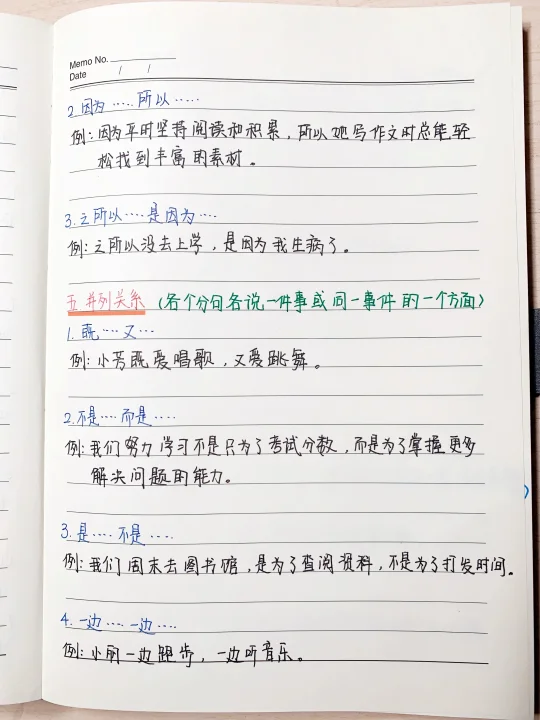 Memo No.
Date / /
2 因为……所以……
例:因为平时坚持阅读和积累,所以她写作文时总能轻
松找到丰富的素材。
3.之所以……是因为……
例:之所以没去上学,是因为我生病了。
五.并列关系(各个分句各说一件事或同一事件的一个方面)
1.既……又…
例:小芳既爱唱歌,又爱跳舞。
2.不是……而是……
例:我们努力学习不是只为了考试分数,而是为了掌握更多
解决问题的能力。
3.是……不是……
例:我们周末去图书馆,是为了查阅资料,不是为了打发时间。
4.一边……一边……
例:小丽一边跑步,一边听音乐。